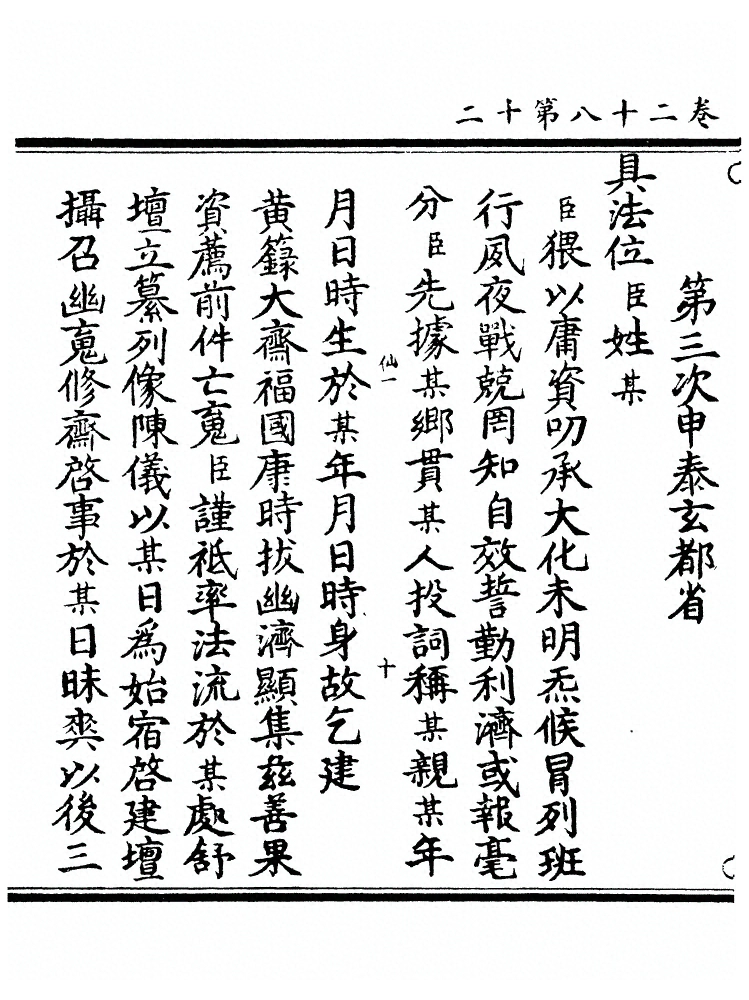 卷二十八第十二
第三次申泰玄都省
具法位臣姓某
臣猥以庸資叨承大化未明炁候冒列班
行夙夜戰兢罔知自效誓勤利濟或報毫
分臣先據某鄉貫某人投詞稱某親某年
月日時生於某年月日時身故乞建
仙一
十
黄籙大齋福國康時拔幽濟顯集兹善果
資薦前件亡䰟臣謹祗率法流於某處舒
壇立纂列像陳儀以某日爲始宿啓建壇
攝召幽䰟修齋啓事於某日昧爽以後三